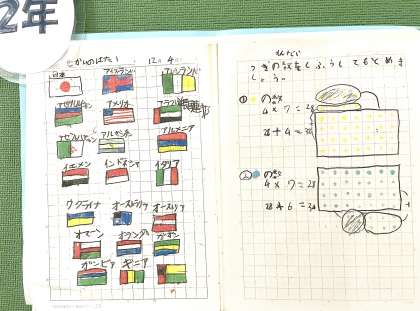 2年
せかいのはた 12.4.
日本 アイスランド アイルランド
アゼルバイジャン アメリカ アラブ首長国
アルゼンチン アルメニア
イエメン インドネシア イタリア
ウクライナ オーストラリア オーストリア
オマーン オランダ ガボン
ガンビア ギニア
もんだい
つぎの数をくふうしてもとめま
しょう。
①の数
4×7=28
28+4=32
②の数
4×7=28
28+6=34